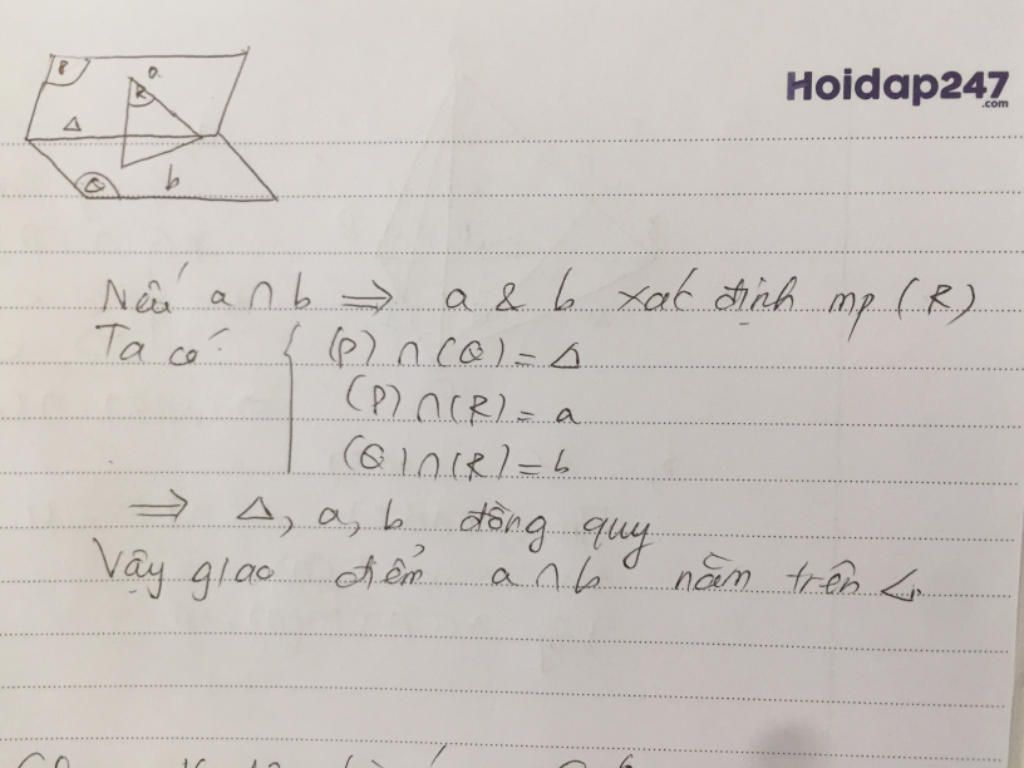 P
a
R
Δ
Q
b
Hoidap247
.com
Nếu a ∩ b ⇒ a & b xác định mp (R)
Ta có: { (P) ∩ (Q) = Δ
(P) ∩ (R) = a
(Q) ∩ (R) = b
⇒ Δ, a, b đồng quy
Vậy giao điểm a ∩ b nằm trên Δ.